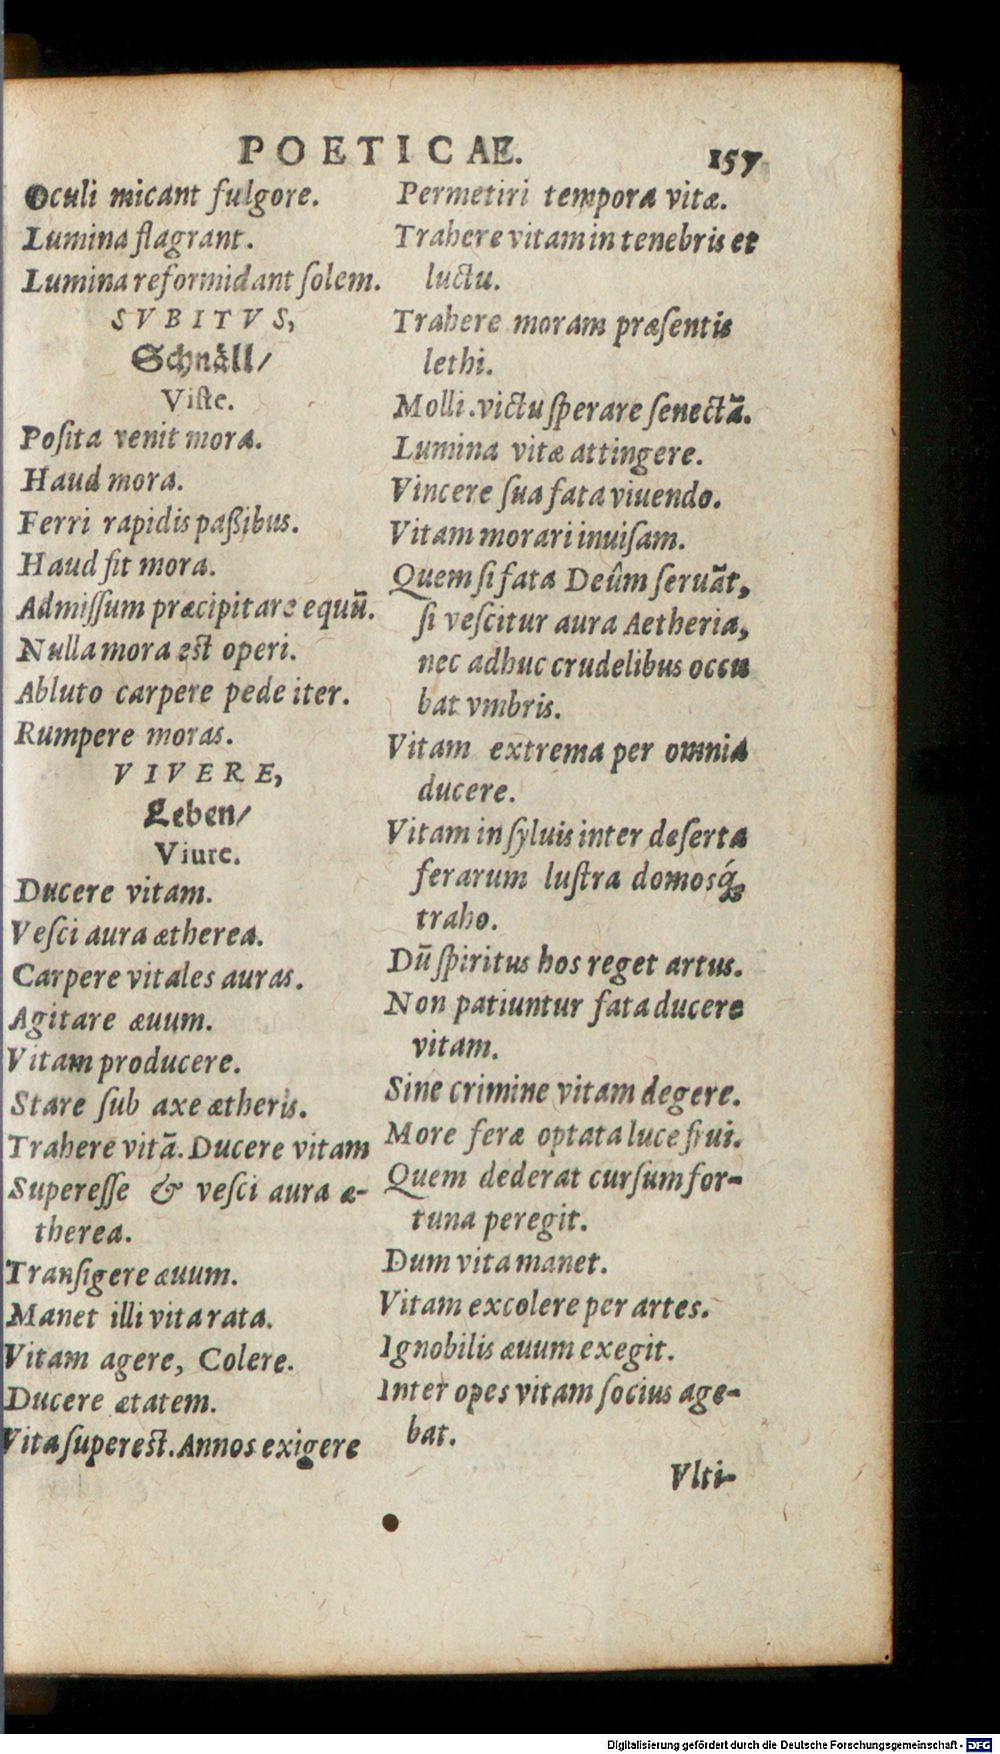 POETICAE. 157
Oculi micant fulgore.
Lumina flagrant.
Lumina reformidant ſolem.
SVBITVS,
Schnåll/
Viſte.
Poſita venit mora.
Haud mora.
Ferri rapidis paßibus.
Haud fit mora.
Admiſſum præcipitare equū.
Nulla mora est operi.
Abluto carpere pede iter.
Rumpere moras.
VIVERE,
Leben/
Viure.
Ducere vitam.
Veſci aura ætherea.
Carpere vitales auras.
Agitare æuum.
Vitam producere.
Stare ſub axe ætheris.
Trahere vitā. Ducere vitam
Supereſſe & veſci aura æ-
therea.
Tranſigere æuum.
Manet illi vita rata.
Vitam agere, Colere.
Ducere ætatem.
Vita ſuperest. Annos exigere
Permetiri tempora vitæ.
Trahere vitam in tenebris et
luctu.
Trahere moram præſentis
lethi.
Molli .victu ſperare ſenectā.
Lumina vitæ attingere.
Vincere ſua fata viuendo.
Vitam morari inuiſam.
Quem ſi fata Deûm ſeruāt,
ſi veſcitur aura Aetheria,
nec adhuc crudelibus occu
bat vmbris.
Vitam extrema per omnia
ducere.
Vitam in ſyluis inter deſerta
ferarum luſtra domosq́;
traho.
Dū ſpiritus hos reget artus.
Non patiuntur fata ducere
vitam.
Sine crimine vitam degere.
More feræ optata luce frui.
Quem dederat curſum for-
tuna peregit.
Dum vita manet.
Vitam excolere per artes.
Ignobilis æuum exegit.
Inter opes vitam ſocius age-
bat.
Vlti-
Digitalisierung gefördert durch die Deutsche Forschungsgemeinschaft - DFG